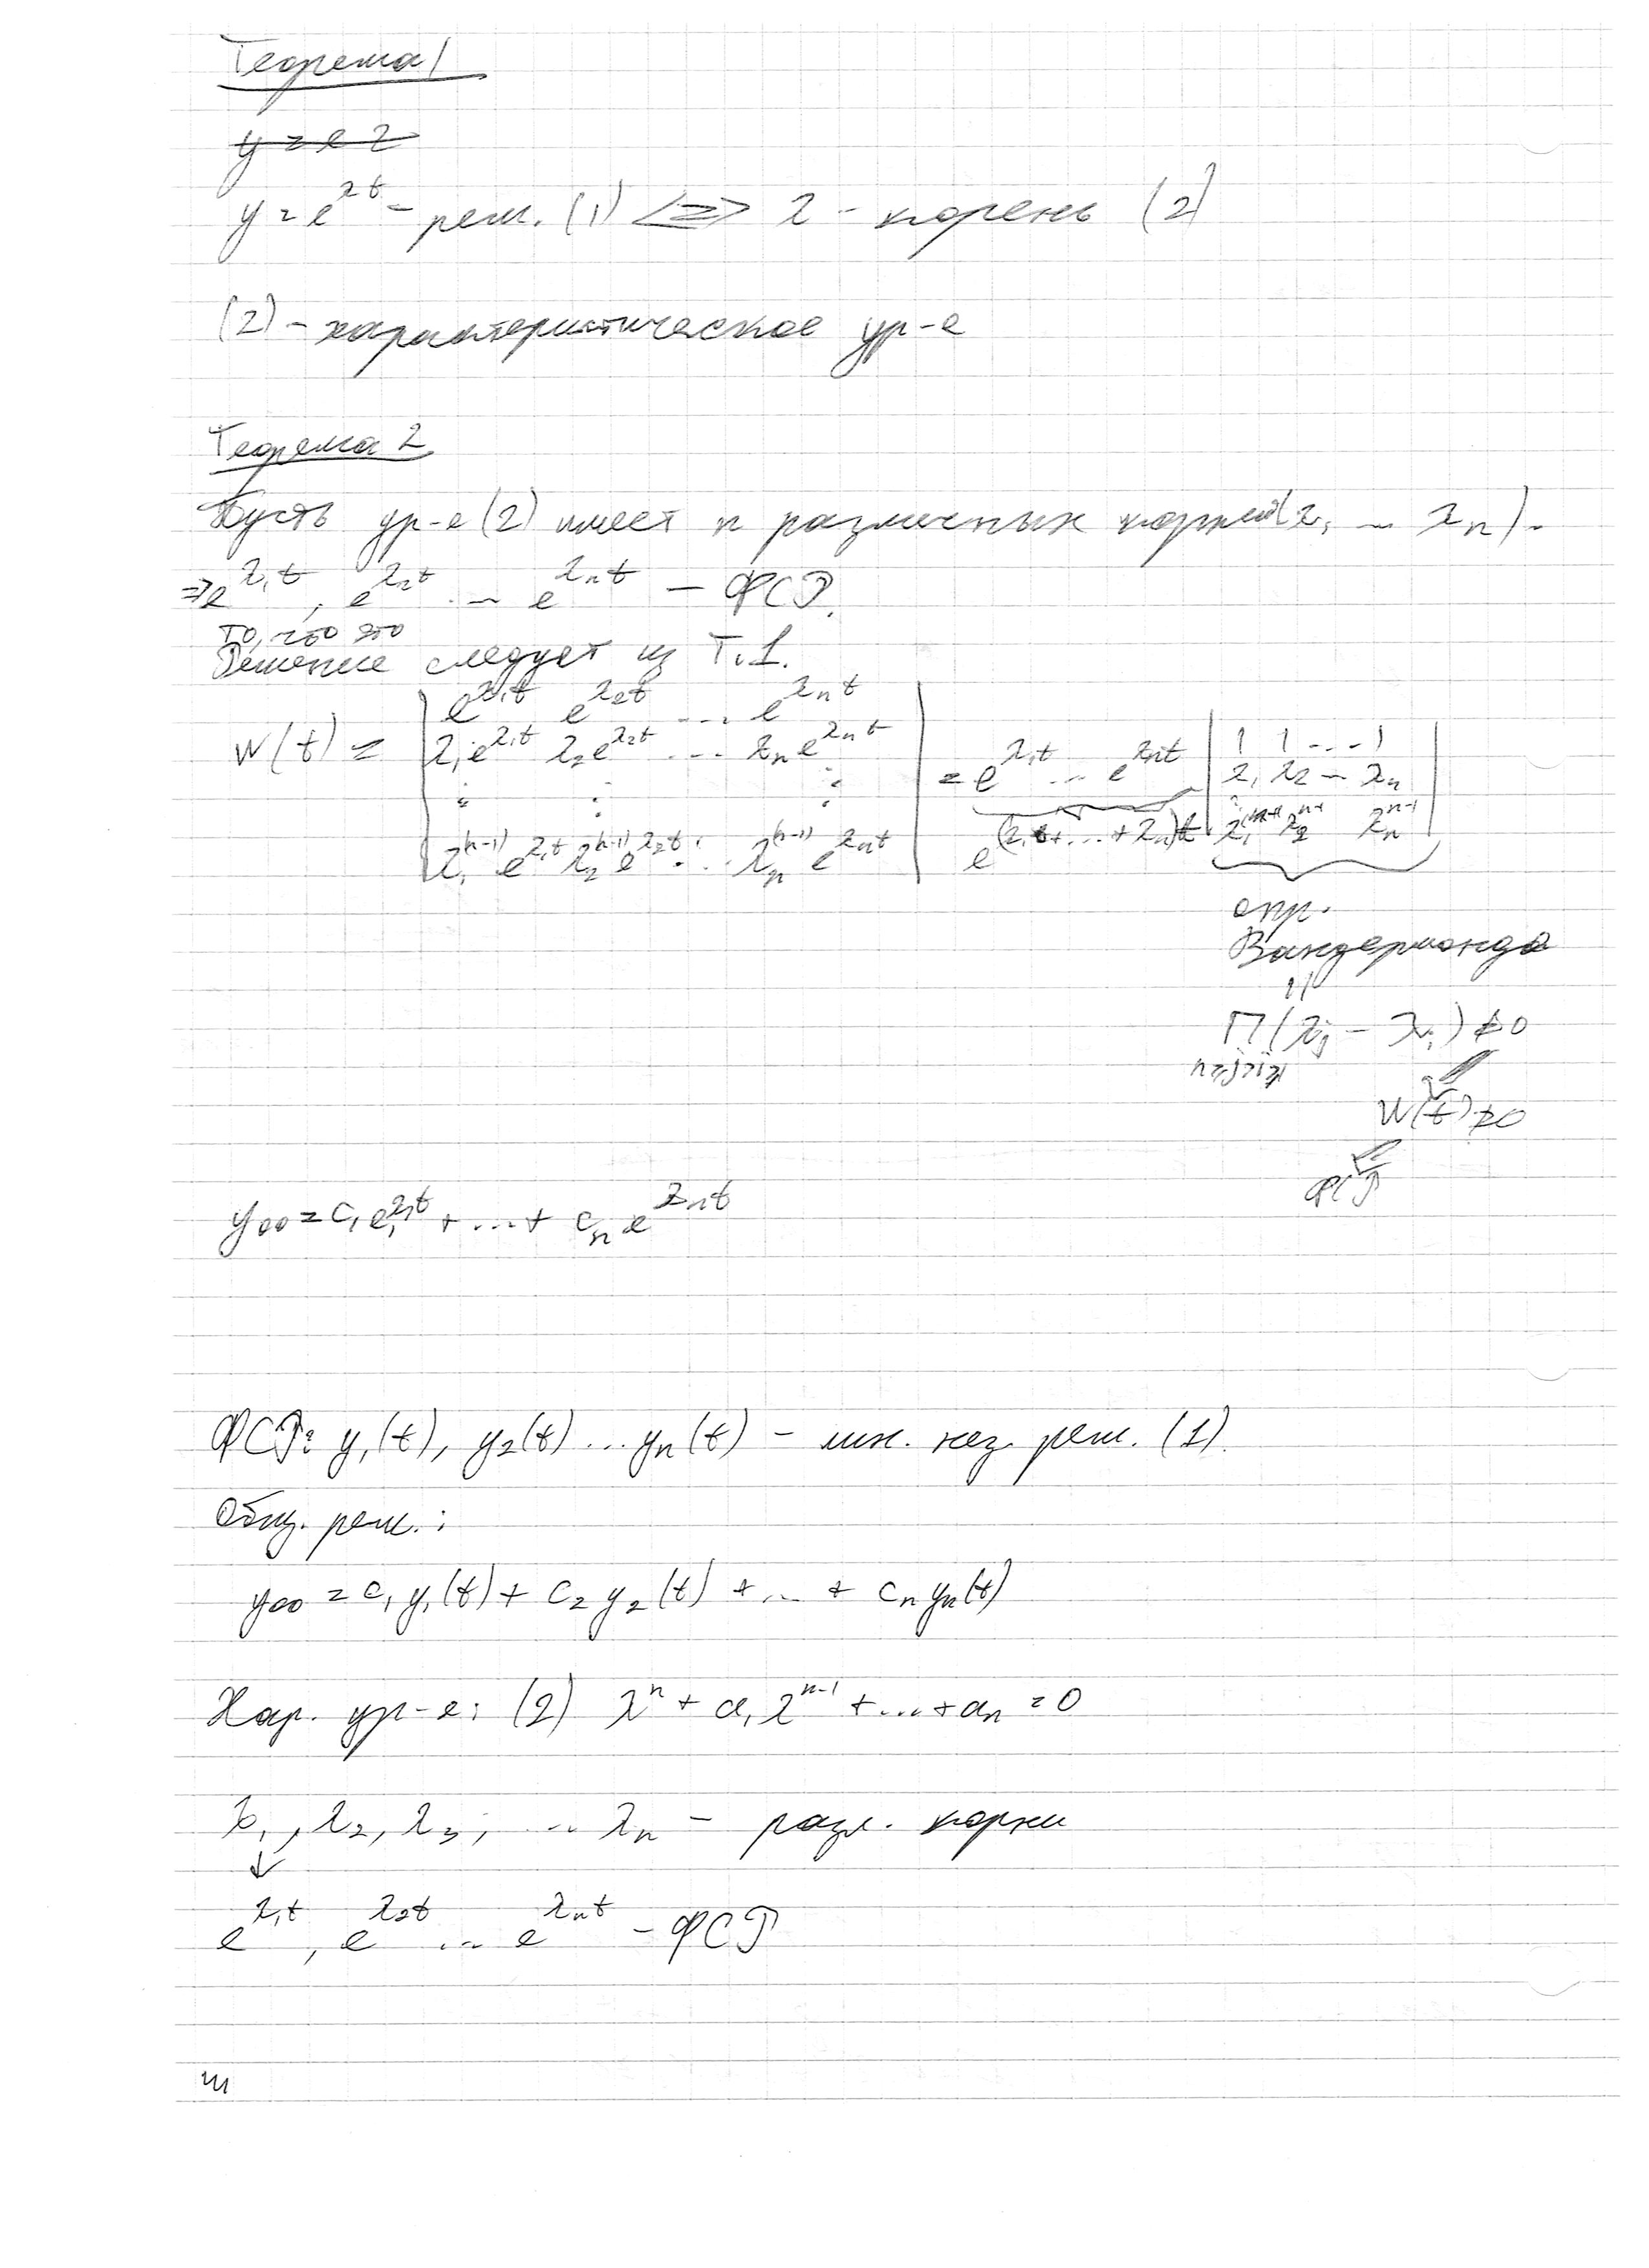 Теорема 1
y = e λ
y = e^{λt} - реш. (1) <=> λ - корень (2)
(2) - характеристическое ур-е
Теорема 2
Пусть ур-е (2) имеет n различных корней (λ₁ ... λₙ).
=> e^{λ₁t}, e^{λ₂t} ... e^{λₙt} - ФСР.
то, что это
Решение следует из Т.1.
W(t) = | e^{λ₁t} e^{λ₂t} ... e^{λₙt} |
| λ₁e^{λ₁t} λ₂e^{λ₂t} ... λₙe^{λₙt} |
| ⋮ ⋮ ⋮ |
| λ₁^{(n-1)} e^{λ₁t} λ₂^{(n-1)} e^{λ₂t} ... λₙ^{(n-1)} e^{λₙt} |
= e^{λ₁t} ... e^{λₙt} | 1 1 ... 1 |
| λ₁ λ₂ ... λₙ |
| λ₁^{n-1} λ₂^{n-1} λₙ^{n-1} |
e^{(λ₁+...+λₙ)t}
опр.
Вандермонда
||
Π(λⱼ - λᵢ) ≠ 0
1≤i<j≤n
W(t) ≠ 0
ФСР
yоо = c₁e^{λ₁t} + ... + cₙe^{λₙt}
ФСР: y₁(t), y₂(t) ... yₙ(t) - лин. нез. реш. (1).
Общ. реш.:
yоо = c₁y₁(t) + c₂y₂(t) + ... + cₙyₙ(t)
Хар. ур-е: (2) λⁿ + a₁λ^{n-1} + ... + aₙ = 0
λ₁, λ₂, λ₃, ... λₙ - разл. корни
↓
e^{λ₁t}, e^{λ₂t} ... e^{λₙt} - ФСР